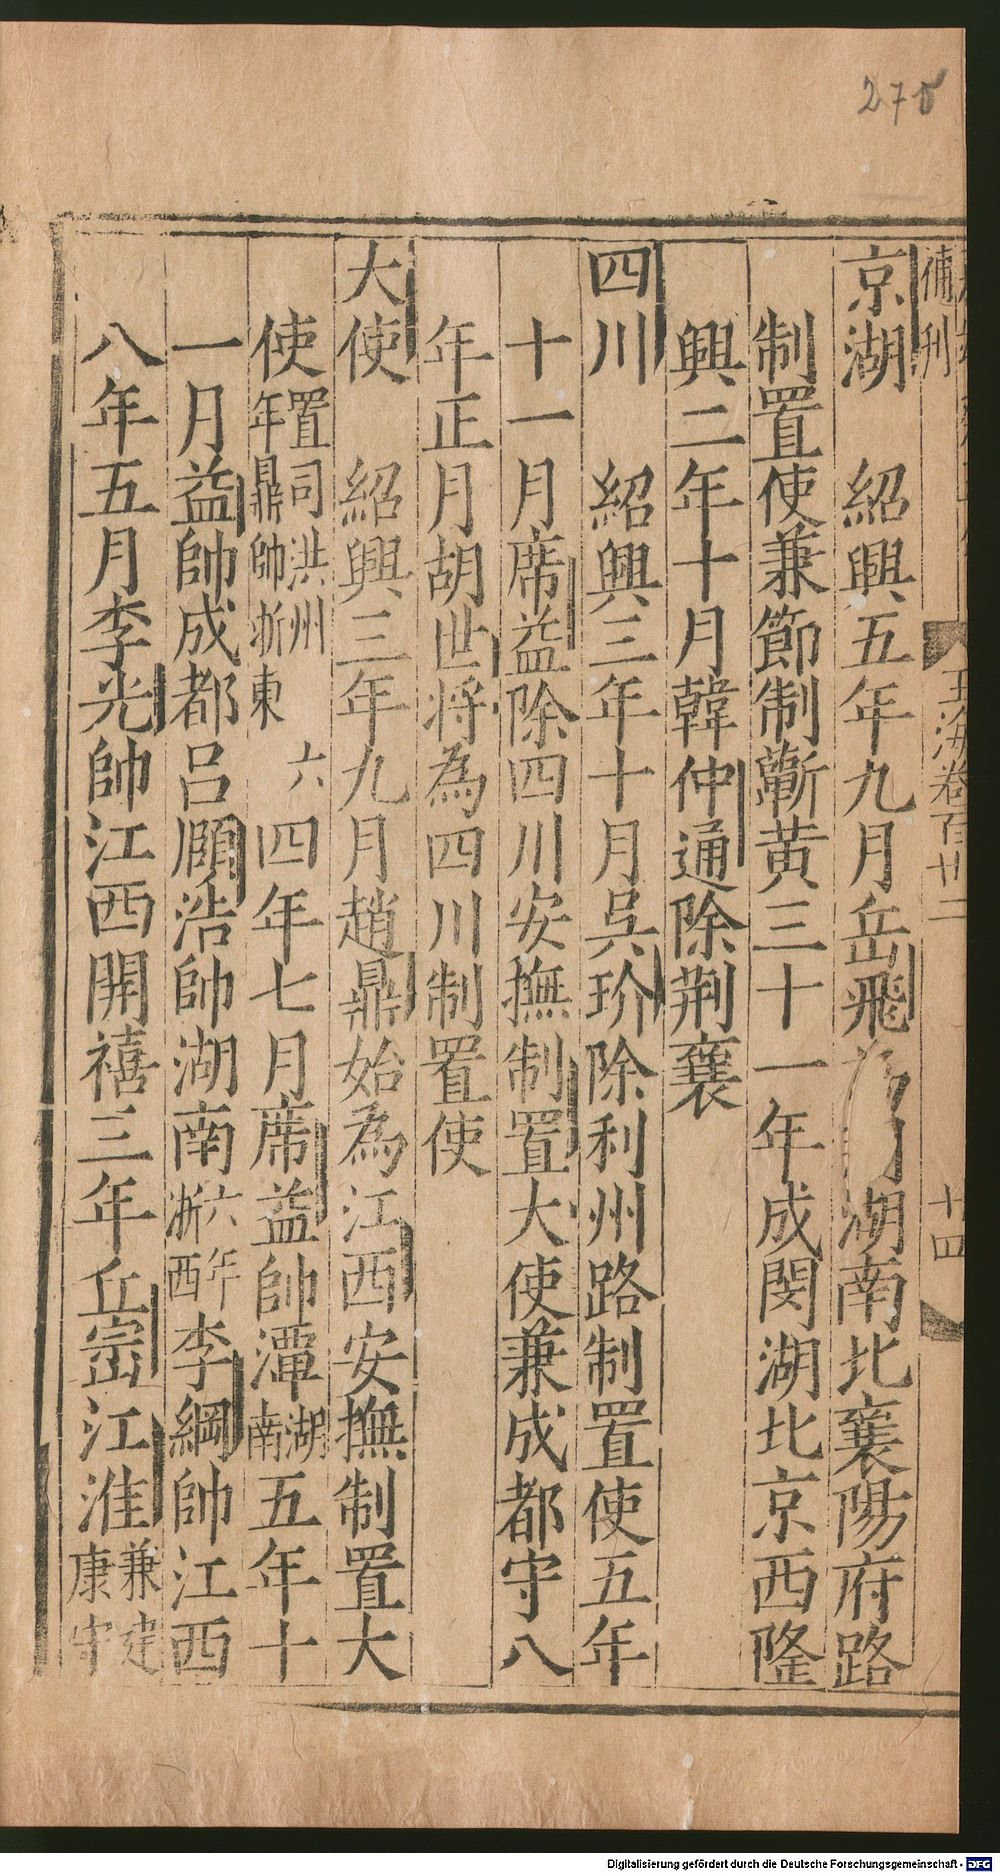 275
補刊
玉海卷百廿二
十四
京湖 紹興五年九月岳飛湖南北襄陽府路
制置使兼節制蘄黄三十一年成閔湖北京西隆
興二年十月韓仲通除荆襄
四川 紹興三年十月吳玠除利州路制置使五年
十一月席益除四川安撫制置大使兼成都守八
年正月胡世将為四川制置使
大使 紹興三年九月趙鼎始為江西安撫制置大
使置司洪州六年鼎帥浙東四年七月席益帥潭湖南五年十
一月益帥成都呂頤浩帥湖南六年浙西李綱帥江西
八年五月李光帥江西開禧三年丘崈江淮兼建康守
Digitalisierung gefördert durch die Deutsche Forschungsgemeinschaft - DFG